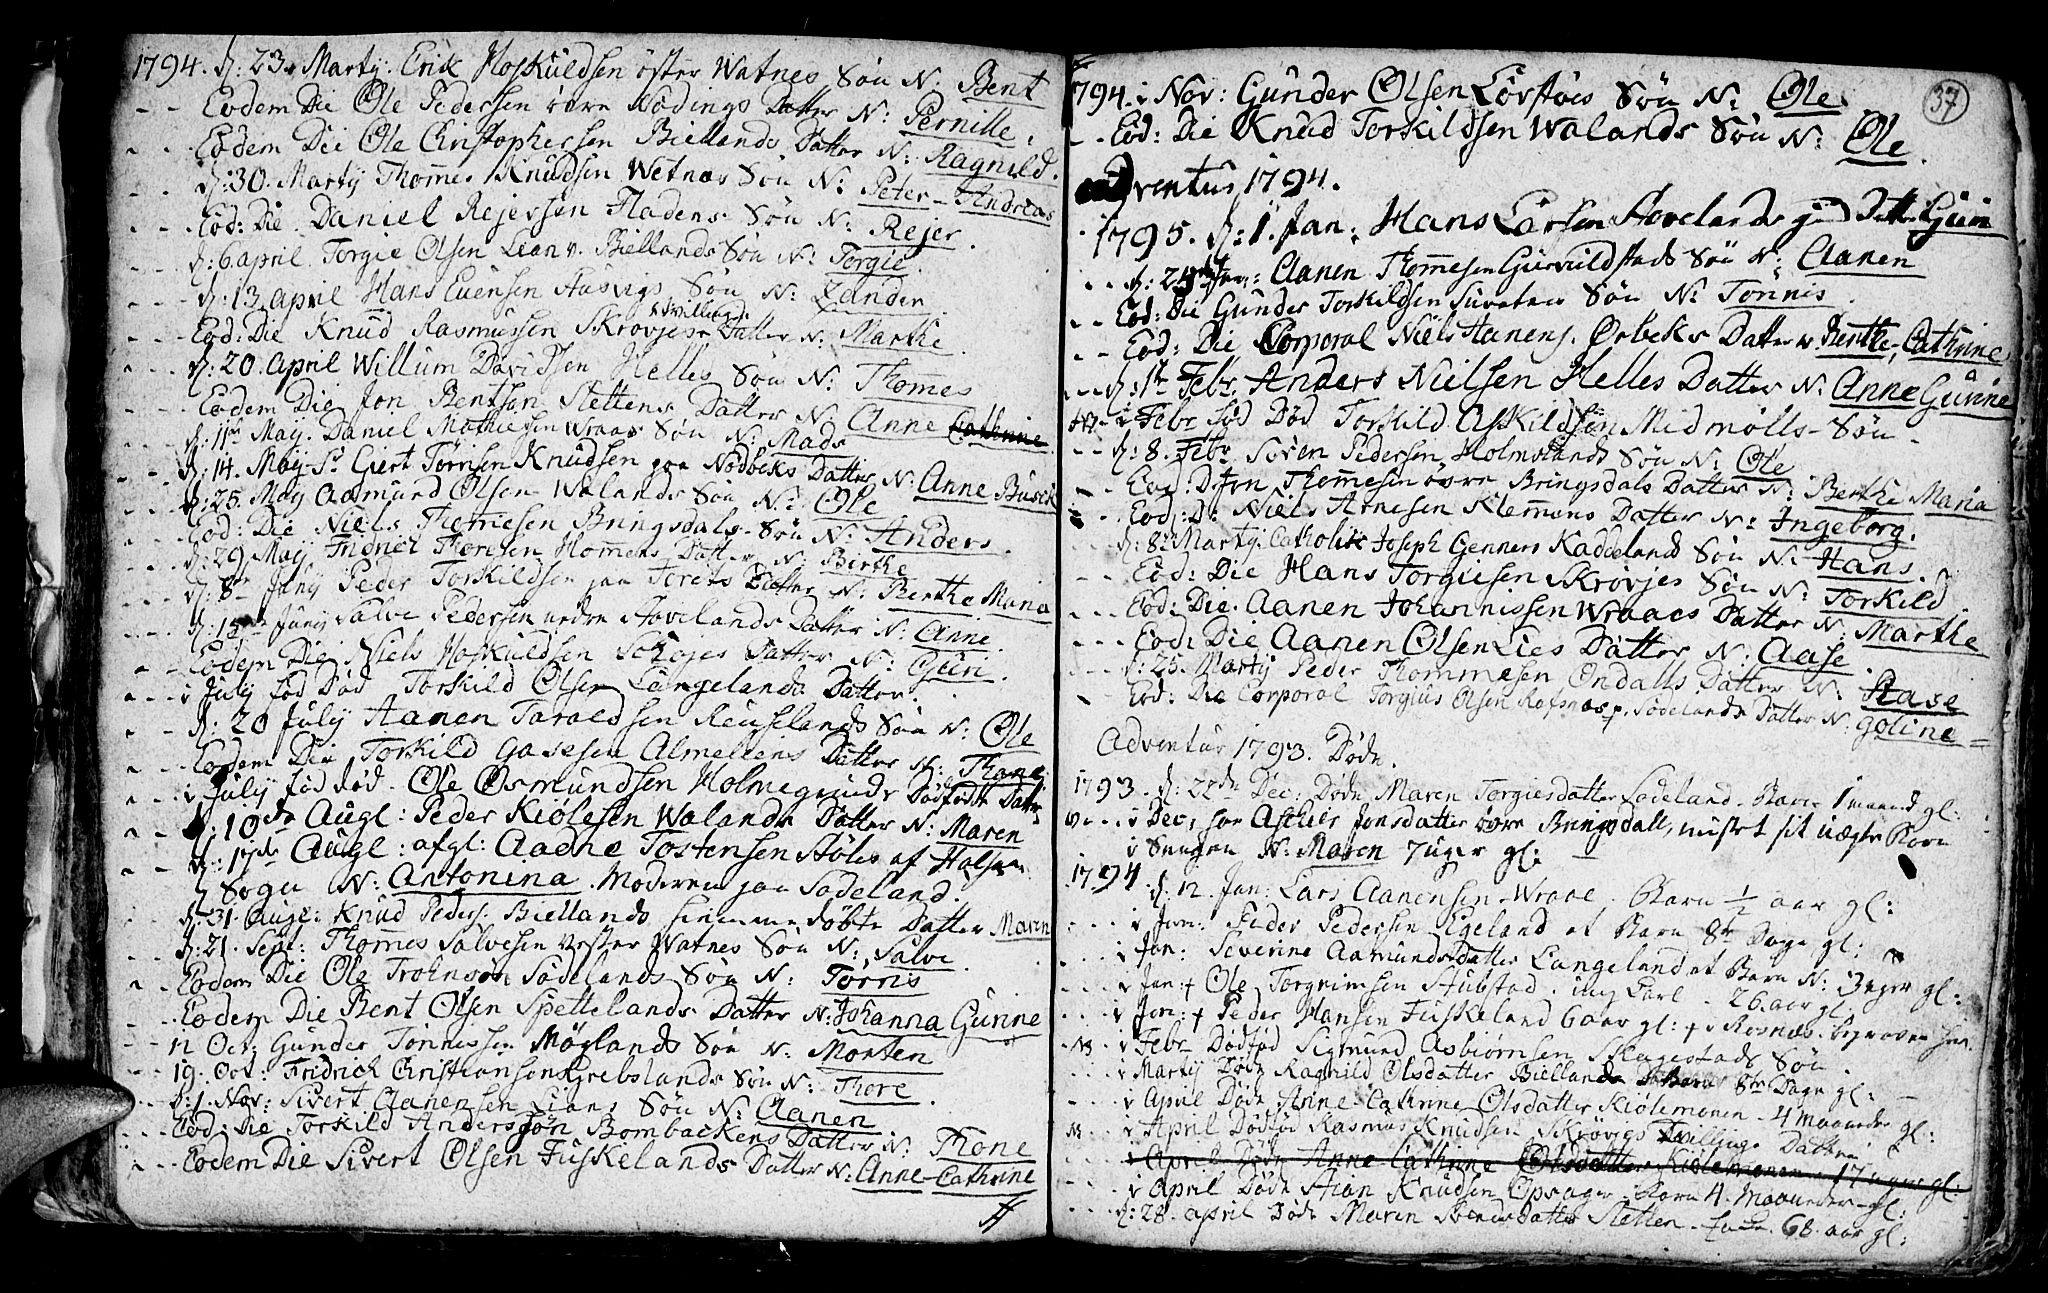 1794. d: 23. Martÿ. Erik Hoskuldsen öster Watnes Søn N: Bent
- - Eodem Die Ole Pedersen övre Nödings Datter N: Pernille.
- - Eodem Die Ole Christophersen Biellands Datter N: Ragnild.
- - d: 30. Martÿ Thomes Knudsen Wetnes Søn N: Peter-Andreas
- - Eod: Die Daniel Rejersen Fladens Søn N: Rejer.
- - d: 6 april Torgie Olsen Lian v. Biellands Søn N: Torgie.
- - d: 13 april Hans Evensen Aasvigs Søn N: Zander
- - Eod: Die Knud Rasmussen Skrövjes Tvilling Datter N: Marthe.
- - d: 20. april Willum Davidsen Helles Søn N: Thomes
- - Eodem Die Jon Bentsen Slettens Datter N: Anne Cathrine
- - d: 11te Maÿ. Daniel Mathiesen Wraas Søn N: Mads
- - d: 14. Maÿ Sr Giert Törnsen Knudsen paa Nodbeks Datter N: Anne Busck
- - d: 25. Maÿ Aasmund Olsen Walands Søn N: Ole
- - Eod: Die Niels Thomesen Bringsdals Søn N: Anders.
- - d: 29 Maÿ Fridrich Thomsen Homens Datter N: Birthe
- - d: 8de Junÿ Peder Torkildsen paa Torets Datter N: Berthe Maria
- - d: 15de Junÿ Salve Pedersen nedre Aavelands Datter N: Anne.
- - Eodem Die Niels Hoskuldsen Datter N: Guri.
- - i Julÿ fød Død Torkild Olsen Langelands Datter.
- - d: 20 Julÿ Aanen Taraldsen Reugelands Søn N: Ole
- - Eodem Die Torkild Gasesen Almeliens Datter N: Thone
- - i Julÿ fød død. Ole Osmundsen Holmegrunds Dødfødt Datter
- - d: 10de Augl: Peder Kiølesen Walands Datter N: Maren
- - d: 17de Augl: afgl: Aadne Tostensen Stöles af Halse
Sogn N: Antonina. Moderen paa Sodeland.
- - d: 31. Augl: Knud Peders. Biellands hiemmedöbte Datter Maren
- - d: 21. Sept: Thomes Salvesen vester Watnes Søn N: Salve
- - Eodem Die Ole Trohnson Sodelands Søn N: Torris
- - Eodem Die Bent Olsen Spettelands Datter N: Johanna Gurine
- - 12 Oct: Gunder Tönnissen Möglands Søn N: Morten
- - 19. Oct: Fridrich Christiansen Grebslands Søn N: Thore
- - d: 1. Nov: Sivert Aanensen Lians Søn N: Aanen
- - Eod: Die Torkild Anderssön Bombackens Datter N: Thone
- - Eodem Die Sivert Olsen Fuskelands Datter N: Anne-Cathrine
37
1794. i Nov: Gunder Olsen Lövstöes Søn N: Ole.
- - Eod: Die Knud Torkildsen Walands Søn N: Ole.
Adventus 1794.
1795. d: 1. Jan: Hans Larsen Aavelands Datter Guri
- - d: 24 Jan: Aanen Thomesen Gunvildstads Søn N: Aanen
- - Eod: Die Gunder Torkildsen Søn N: Tonnis.
- - Eod: Die Corporal Niels Aanens. Orbeks Datter N. Benthe Cathrine
- - d: 1te Febr Anders Nielsen Helles Datter N: Anne Gurine
- i Febr fød Død Torkild Askildsen Midmölls Søn -
- - d: 8. Febr Soren Pedersen Holmslands Søn N: Ole
- - Eod: D: Jon Thomesen övre Bringsdals Datter N: Berthe Maria
- - Eod: D: Niels Arnesen Klemmens Datter N: Ingeborg.
- - d: 8de Martÿ Catholik Joseph Genners Kaddelands Søn N: Hans.
- - Eod: Die Hans Torgiesen Skrövjes Søn N: Torkild.
- - Eod: Die. Aanen Johannissen Wraaes Datter N: Marthe
- - Eod: Die Aanen Olsen Lies Datter N: Aase
- - d: 25. Martÿ Peder Thommesen Ondalls Datter N: Aase
- Eod: Die Corporal Torgius Olsen Rafsnæs p. Sodelands Datter N: Goline
Adventus 1793. Døde.
1793. d: 22de Dec: Døde Maren Torgiesdatter Sodeland. Barn 1 maaned gl:
- - i Dec: har Aschier Jonsdatter övre Bringsdall, mistet sit uægte Barn
i Sengen N: Maren 7 uger gl:
1794. d. 12. Jan: Lars Aanensen Wraae. Barn ½ aar gl:
- - i Jan: Peder Pedersen Egeland et Barn 8te Dage gl:
- - i Jan: Severine Aamundsdatter Langeland et Barn N: 3 uger gl:
- - i Jan: + Ole Torgrimsen Stubstad. ung Karl. 26. aar gl:
- - i Jan: + Peder Hansen Fuskeland 60 aar gl: + v Rosnæs. begraven her.
- i Febr Dødfød Sigmund Asbiørnsen Skagestads Søn.
- - i Martÿ Døde Ragnild Olsdatter Bielland Barn 8te Dage gl:
- - i April Døde Anne-Cathrine Olsdatter Kiölemonen - 4 Maaneder gl:
- i April Dødfød Rasmus Knudsen Skrövigs Tvillings Datter
i April Døde Anne Cathrine Olsdatter Kiölemonen. 17 uger gl:
- - i April Døde Stian Knudsen Opsager. Barn 4. Maaneder gl:
- - d: 28. april Døde Maren Svendsdatter Sletten - Enke. 68. aar gl: